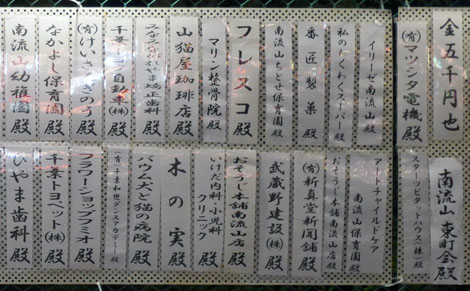 金五千円也
(有)マツシタ電機殿
イリーゼ南流山殿
私のリくわくスーパー殿
南流山ちとせ保育園殿
番匠製菓殿
フレスコ殿
マリン整骨院殿
山猫屋珈琲店殿
(有)けいさぎのう殿
なかよし保育園殿
南流山幼稚園殿
南流山東町会殿
スターツピタットハウス(株)殿
アートチャイルドケア
南流山保育園殿
おそうじ本舗南流山店殿
(有)新真堂新聞舗殿
武蔵野建設(株)殿
おそうじ本舗南流山店殿
いけだ内科・小児科
クリニック殿
木の実殿
バウム犬と猫の病院殿
(有)千葉和世ダンスアカデミー殿
フラワーショップフミオ殿
千葉トヨペット(株)殿
ひやま歯科殿